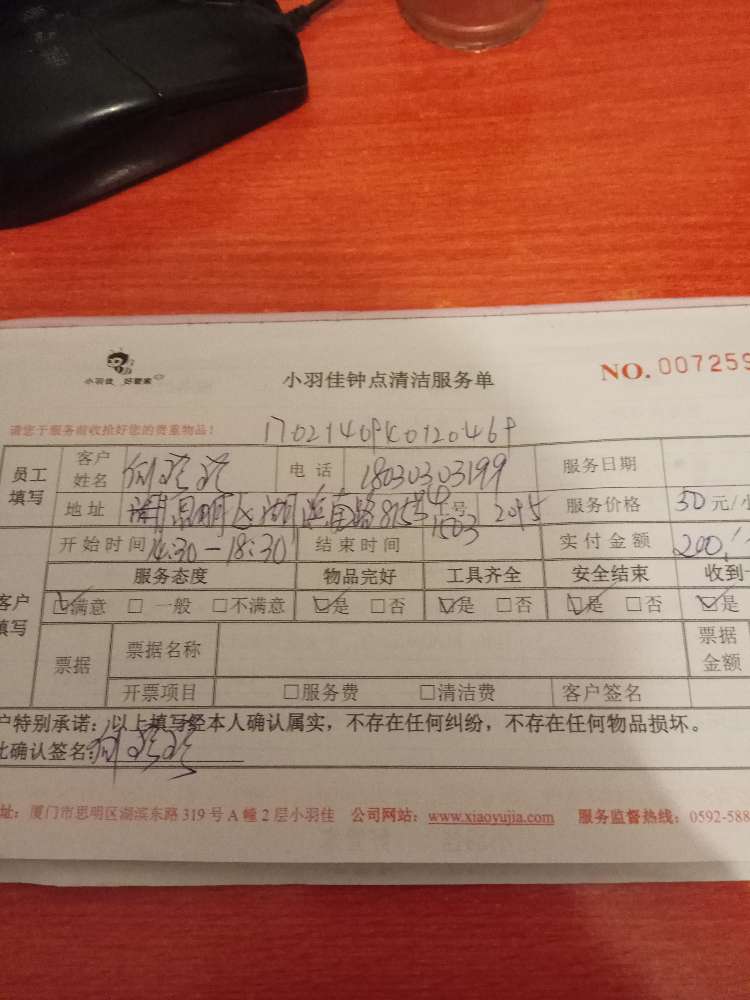 小羽佳 好管家
小羽佳钟点清洁服务单
NO. 007259
请您于服务前收拾好您的贵重物品!
员工填写 客户姓名 电话 18030303199 服务日期
地址 湖滨南路 工号 2095 服务价格 50元/小
开始时间 14:30-18:30 结束时间 实付金额 200
服务态度 物品完好 工具齐全 安全结束 收到
客户填写 ☑满意 □ 一般 □不满意 ☑是 □否 ☑是 □否 ☑是 □否 ☑是
票据 票据名称 票据金额
开票项目 □服务费 □清洁费 客户签名
户特别承诺:以上填写经本人确认属实,不存在任何纠纷,不存在任何物品损坏。
此确认签名:
址:厦门市思明区湖滨东路 319 号 A 幢 2 层小羽佳 公司网站:www.xiaoyujia.com 服务监督热线:0592-588